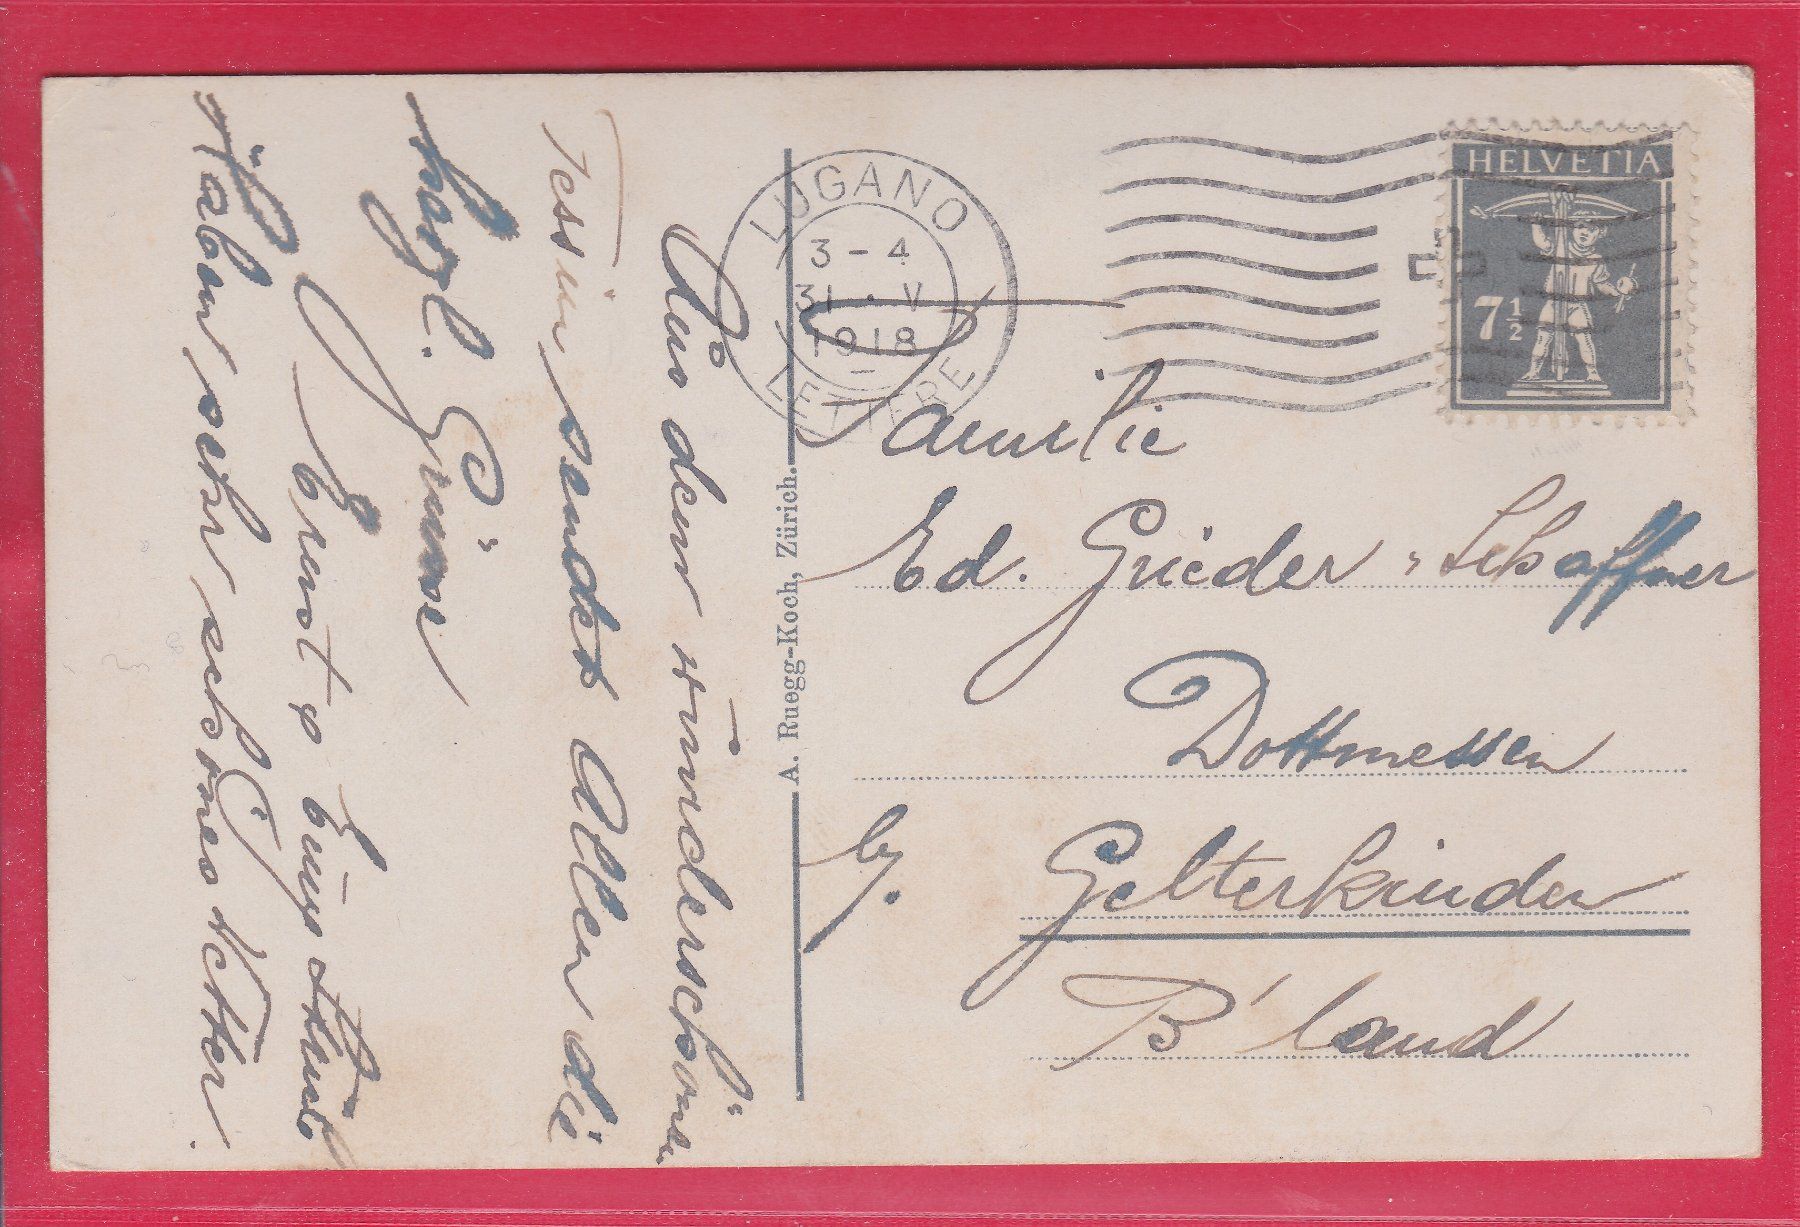 Aus dem wunderschönen
Tessin sendet Allen die
herzl. Grüsse
Ernst
Haben sehr schönes Wetter.
A. Ruegg-Koch, Zürich.
LUGANO
3 - 4
31 · V
1918
LETTERE
HELVETIA
7½
Familie
Ed. Grieder-Schaffner
Dottmessen
b/. Gelterkinden
B'land